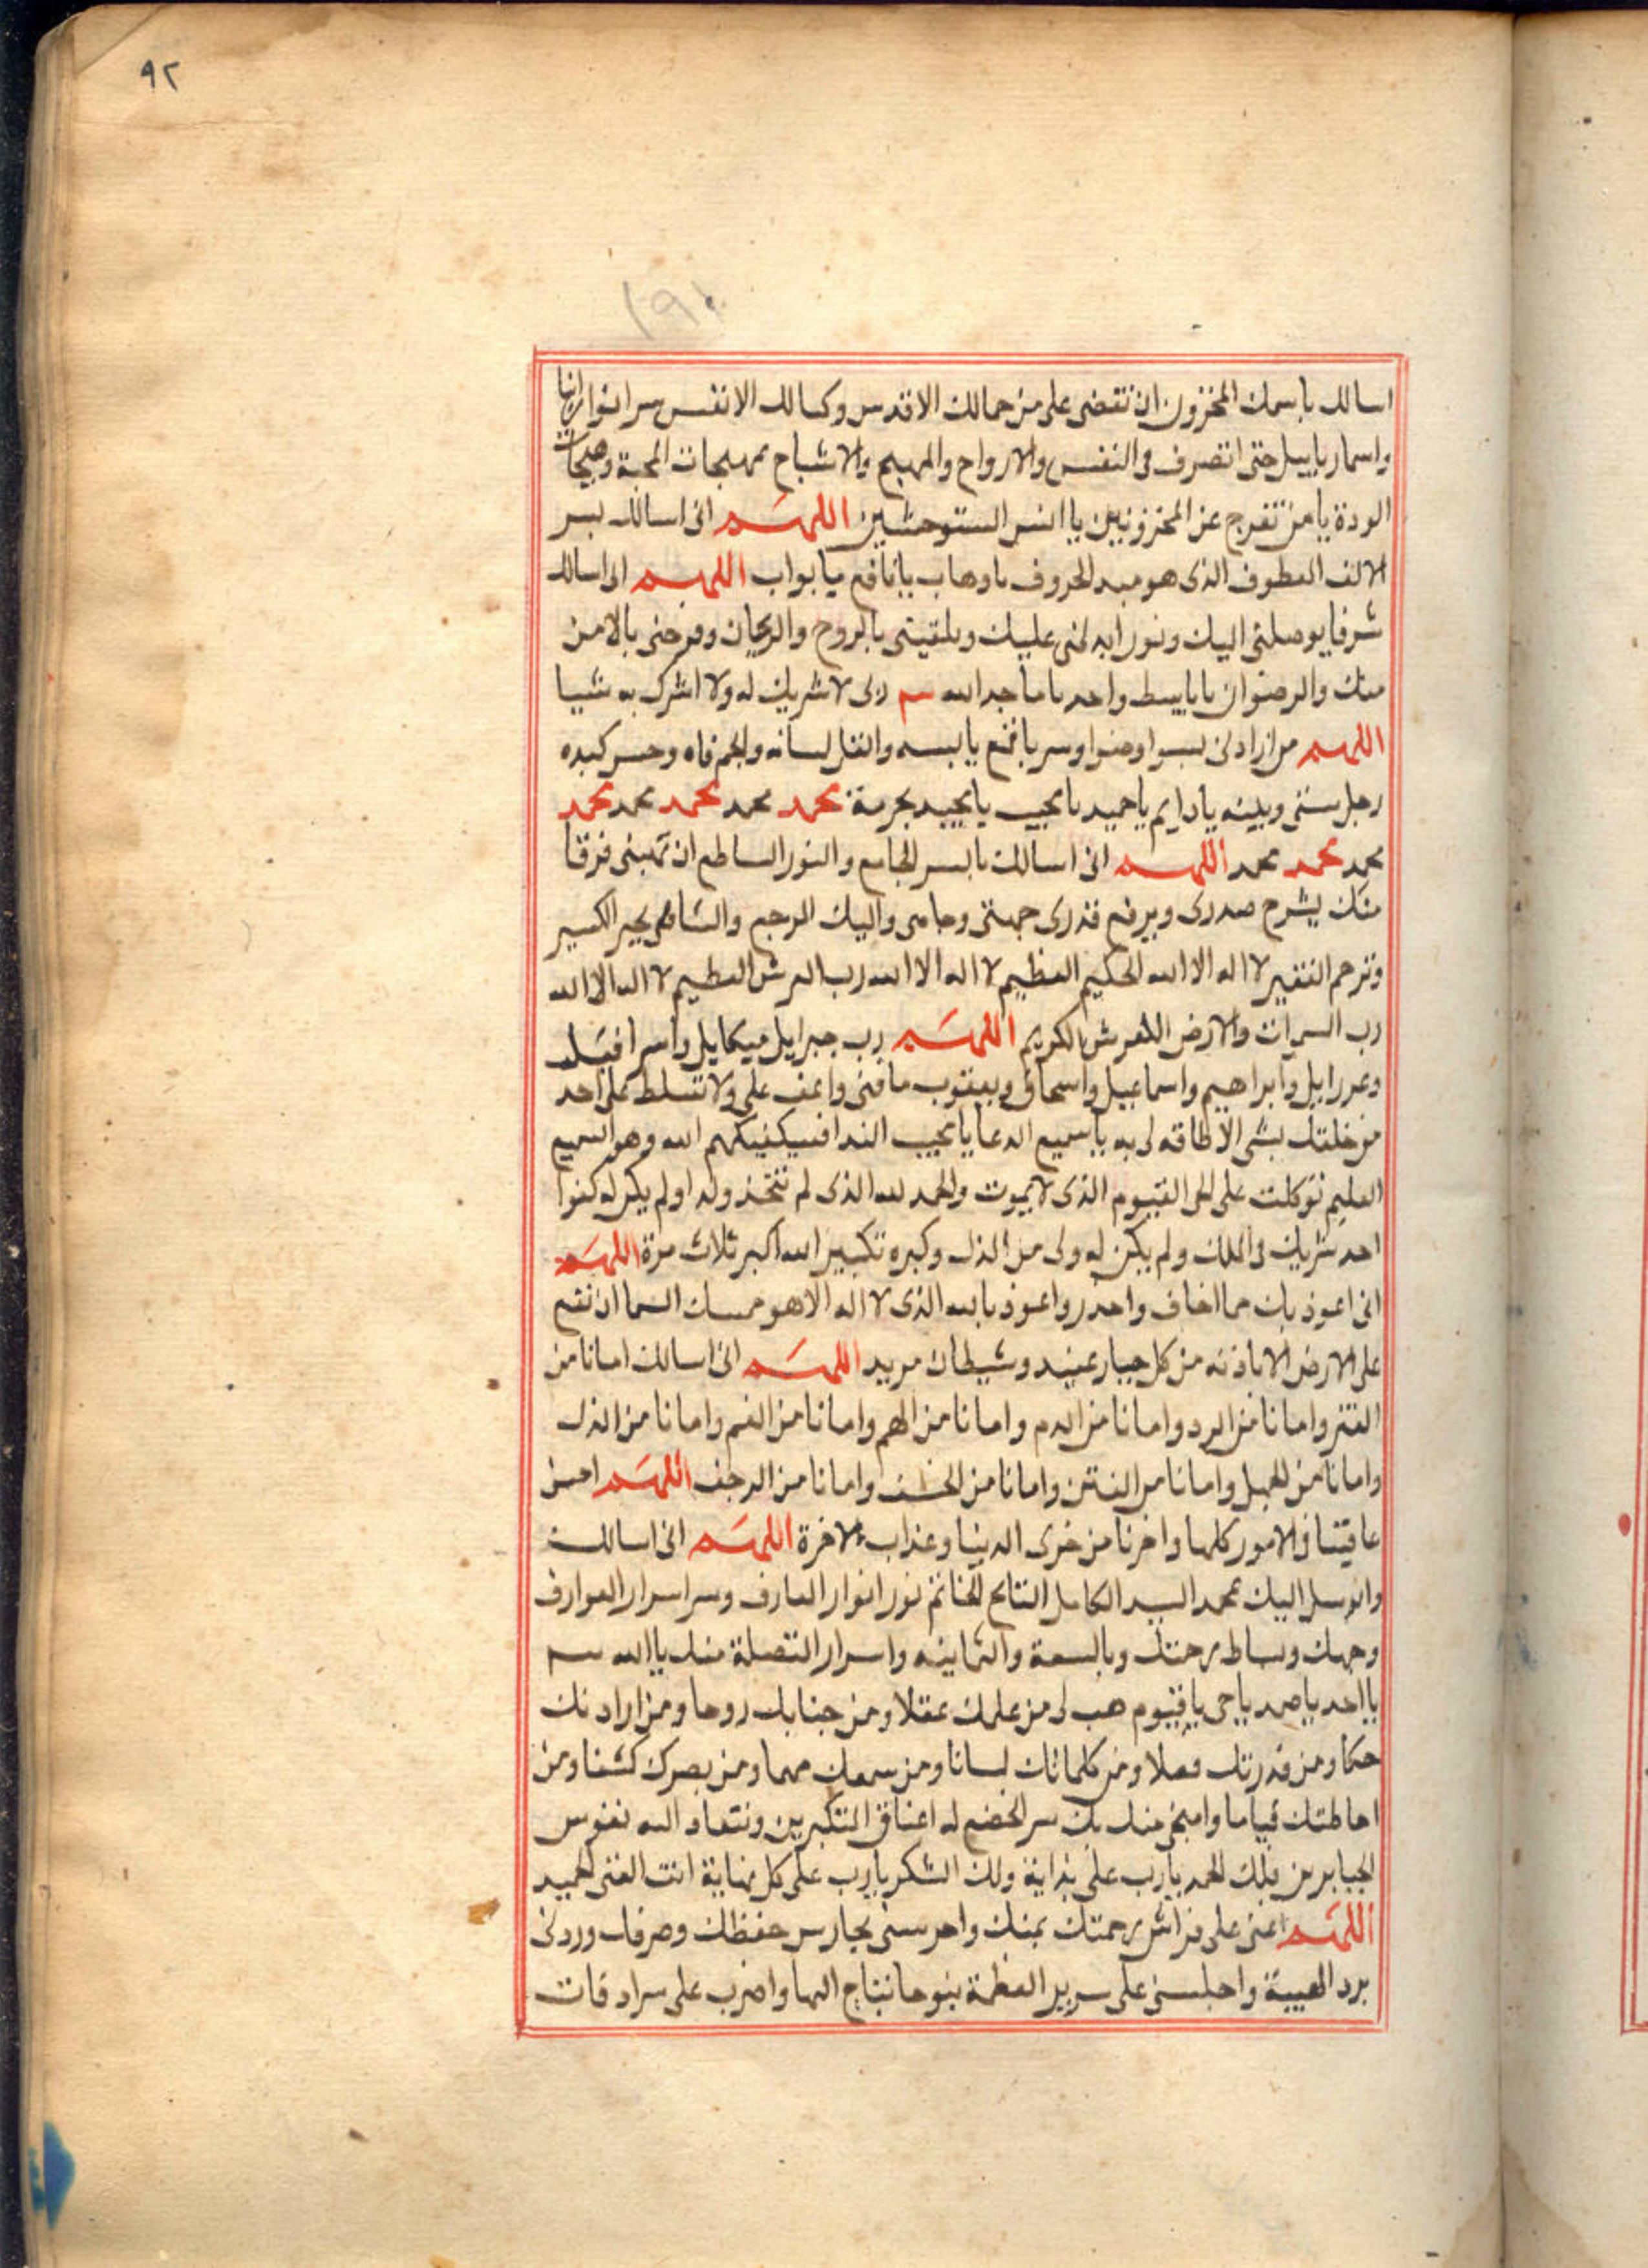 ٩٢
١٩١
اسالك باسمك المخزون ان تقضى على من جمالك الاقدس وكمالك الانفس سر انوار
واسمار ياييل حتى اتصرف فى النفس والارواح والمهيج والاشباح بمهيجات المحبة وهيجات
الودة يا من تفرج عن المخزونيين يا انس الستوحشين اللهم انى اسالك بسر
الالف العطوف الذى هو مبد الحروف ياوهاب يانافع يابواب اللهم انى اسالك
شرفا يوصلنى اليك ونورا يدلنى عليك ويلقينى بالروح والريحان وفرحنى بالامن
منك والرضوان ياباسط واحد ياماجد الله ربى لا شريك له ولا اشرك به شيا
اللهم من ارادنى بسوا وضوا وسر يابسه واثقل لسانه والجم فاه وحس كبده
وحل بينى وبينه يادايم ياحميد يامجيب يامجيد بحرمة محمد محمد محمد محمد محمد
محمد محمد محمد اللهم انى اسالك بالسر الجامع والنور الساطع ان تهبنى فرقا
منك يشرح صدرى ويرفع قدرى جهتى وجاهى واليك الرجع والشافى بجبر الكسير
وترحم الفقير لا اله الا الله الحكيم العظيم لا اله الا الله رب العرش العظيم لا اله الا الله
رب السموات والارض العرش الكريم اللهم رب جبرايل ميكايل واسرافيل
وعزرايل وابراهيم واسماعيل واسحاق ويعقوب عافنى واعف على ولا تسلط على احد
من خلقك بشى لا طاقة لى به ياسميع الدعا يامجيب الندا فسيكفيكهم الله وهو السميع
العليم توكلت على الحى القيوم الذى لا يموت والحمد لله الذى لم يتخذ ولدا ولم يكن له كفوا
احد شريك فى الملك ولم يكن له ولى من الذل وكبره تكبيرا الله اكبر ثلاث مرة اللهم
انى اعوذ بك مما اخاف واحذر واعوذ بالله الذى لا اله الا هو ممسك السما ان تقع
على الارض الا باذنه من كل جبار عنيد وشيطان مريد اللهم انى اسالك امانا من
الفقر وامانا من البرد وامانا من الهدم وامانا من الهم وامانا من الغم وامانا من الذل
وامانا من الجهل وامانا من الفتن وامانا من الخسف وامانا من الرجف اللهم احسن
عاقبتنا فى الامور كلها واجرنا من خزى الدنيا وعذاب الاخرة اللهم انى اسالك
واتوسل اليك بمحمد السيد الكامل الفاتح الخاتم نور انوار العارف وسر اسرار العوارف
وجهك وبساط رحمتك وبالسبعة والثمانيه واسرار التصلة منك ياالله
يااحد ياصمد ياحى ياقيوم هب لى من علمك عقلا ومن جنابك روحا ومن ارادتك
حكما ومن قدرتك فعلا ومن كلماتك لسانا ومن سمعك فهما ومن بصرك كشفا ومن
احاطتك قياما وامنحنى منك بك سر الخضع له اعناق التكبرين وتنقاد اليه نفوس
الجبابرين فلك الحمد يارب على بداية ولك الشكر يارب على كل نهاية انت الغنى الحميد
اللهم اعنى على فراش رحمتك بمنك واحرسنى بحارس حفظك وصرفك وردنى
برد الهيبة واجلسنى على سرير العظمة بتاج البها واضرب على سرادقات